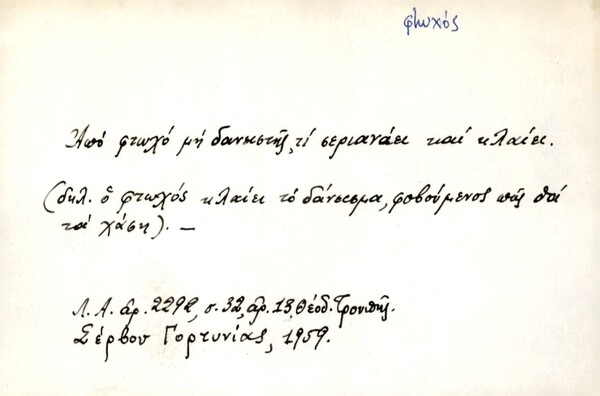 φτωχός
Ἀπό φτωχό μή δανειστῆς, τί σεριανάει καί κλαίει.
(δηλ. ὁ φτωχός κλαίει τό δάνεισμα, φοβούμενος πῶς θά
τά χάσῃ). —
Λ. Α. ἀρ. 2292, σ. 32, ἀρ. 13, Θεόδ. Τρουπῆς.
Σέρβου Γορτυνίας, 1959.